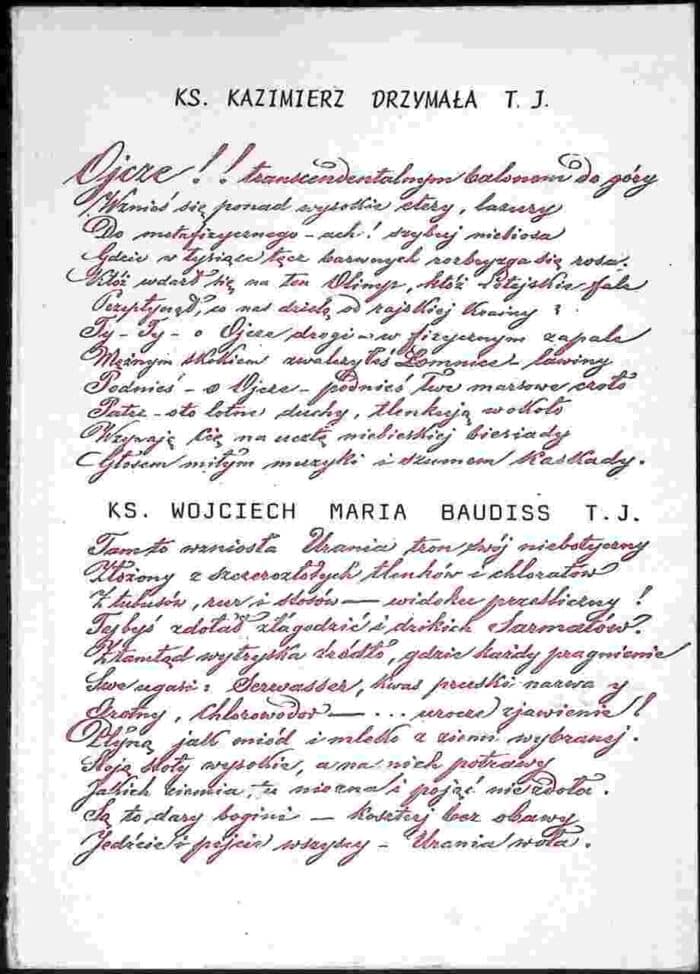 KS. KAZIMIERZ DRZYMAŁA T. J.
Ojcze!! transcendentalnym balonem do góry
Wznieś się ponad wysokie etery, lazury
Do metafizycznego - ach! szybuj niebiosa
Gdzie w tysiące tęcz barwnych rozbryzga się rosa.
Któż wdarł się na ten Olimp, któż fale
co nas dzielą od rajskiej krainy?
Ty - Ty - o Ojcze drogi - w fizycznym zapale
Mężnym skokiem zwalczyłeś Łomnicę - lawiny
Podnieś - o Ojcze - podnieś twe marsowe czoło
Patrz - oto lotne duchy, tlenkują wokoło
Wzywają Cię na ucztę niebieskiej biesiady
Głosem miłym muzyki i szumem kaskady.
KS. WOJCIECH MARIA BAUDISS T.J.
Tam to wzniosła Urania tron swój niebotyczny
Złożony z szczerozłotych tlenków i chloratów
Z tubusów, rur i stosów — widoku prześliczny!
Tyś byś zdołał złagodzić i dzikich Sarmatów.
Ztamtąd wytryska źródło, gdzie każdy pragnienie
Swe ugasi: Serwasser, kwas pruski nazwa
, Chlorowodor — ... urocze zjawienie!
Płyną jak miód i mleko z ziemi wybranej.
Stoją stoły wysokie, a na nich potrawy
Jakich ziemia, tu nie zna i pojąć nie zdoła.
Są to dary bogini — kosztuj bez obawy
Jedzcie i pijcie wszyscy - Urania woła.